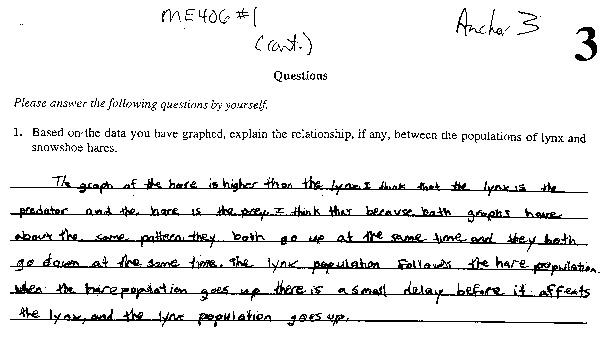 ME406 #1
(cont.)
Anchor 3
3
Questions
Please answer the following questions by yourself.
1. Based on the data you have graphed, explain the relationship, if any, between the populations of lynx and
snowshoe hares.
The graph of the hare is higher than the lynx. I think that the lynx is the
predator and the hare is the prey. I think this because both graphs have
about the same pattern. they both go up at the same time and they both
go down at the same time. The lynx population follows the hare population.
when the hare population goes up there is a small delay before it affects
the lynx, and the lynx population goes up.